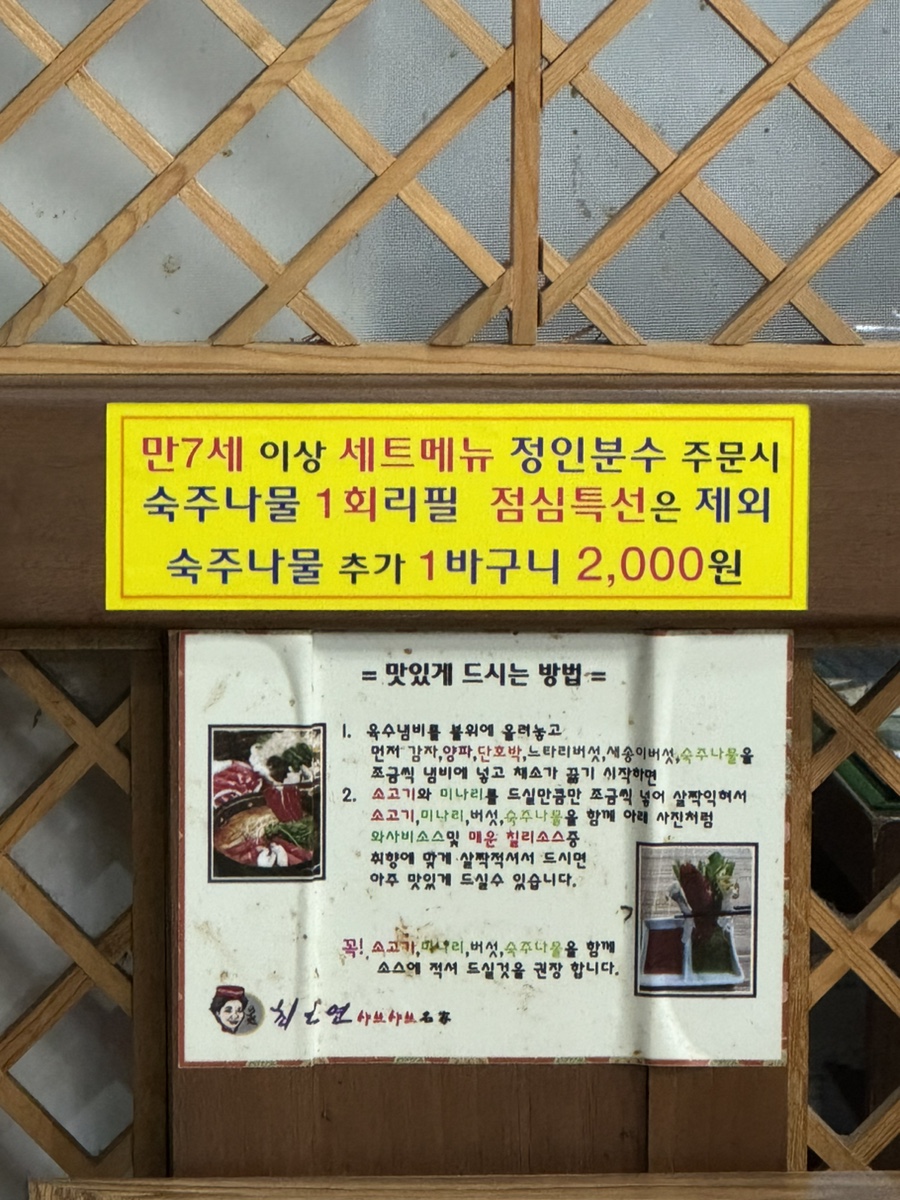 만7세 이상 세트메뉴 정인분수 주문시
숙주나물 1회리필 점심특선은 제외
숙주나물 추가 1바구니 2,000원
= 맛있게 드시는 방법 =
1. 육수냄비를 불위에 올려놓고
먼저 감자,양파,단호박,느타리버섯,새송이버섯,숙주나물을
조금씩 냄비에 넣고 채소가 끓기 시작하면
2. 소고기와 미나리를 드실만큼만 조금씩 넣어 살짝익혀서
소고기,미나리,버섯,숙주나물을 함께 아래 사진처럼
와사비소스및 매운 칠리소스중
취향에 맞게 살짝적셔서 드시면
아주 맛있게 드실수 있습니다.
꼭! 소고기,미나리,버섯,숙주나물을 함께
소스에 적셔 드실것을 권장 합니다.
샤브샤브名家